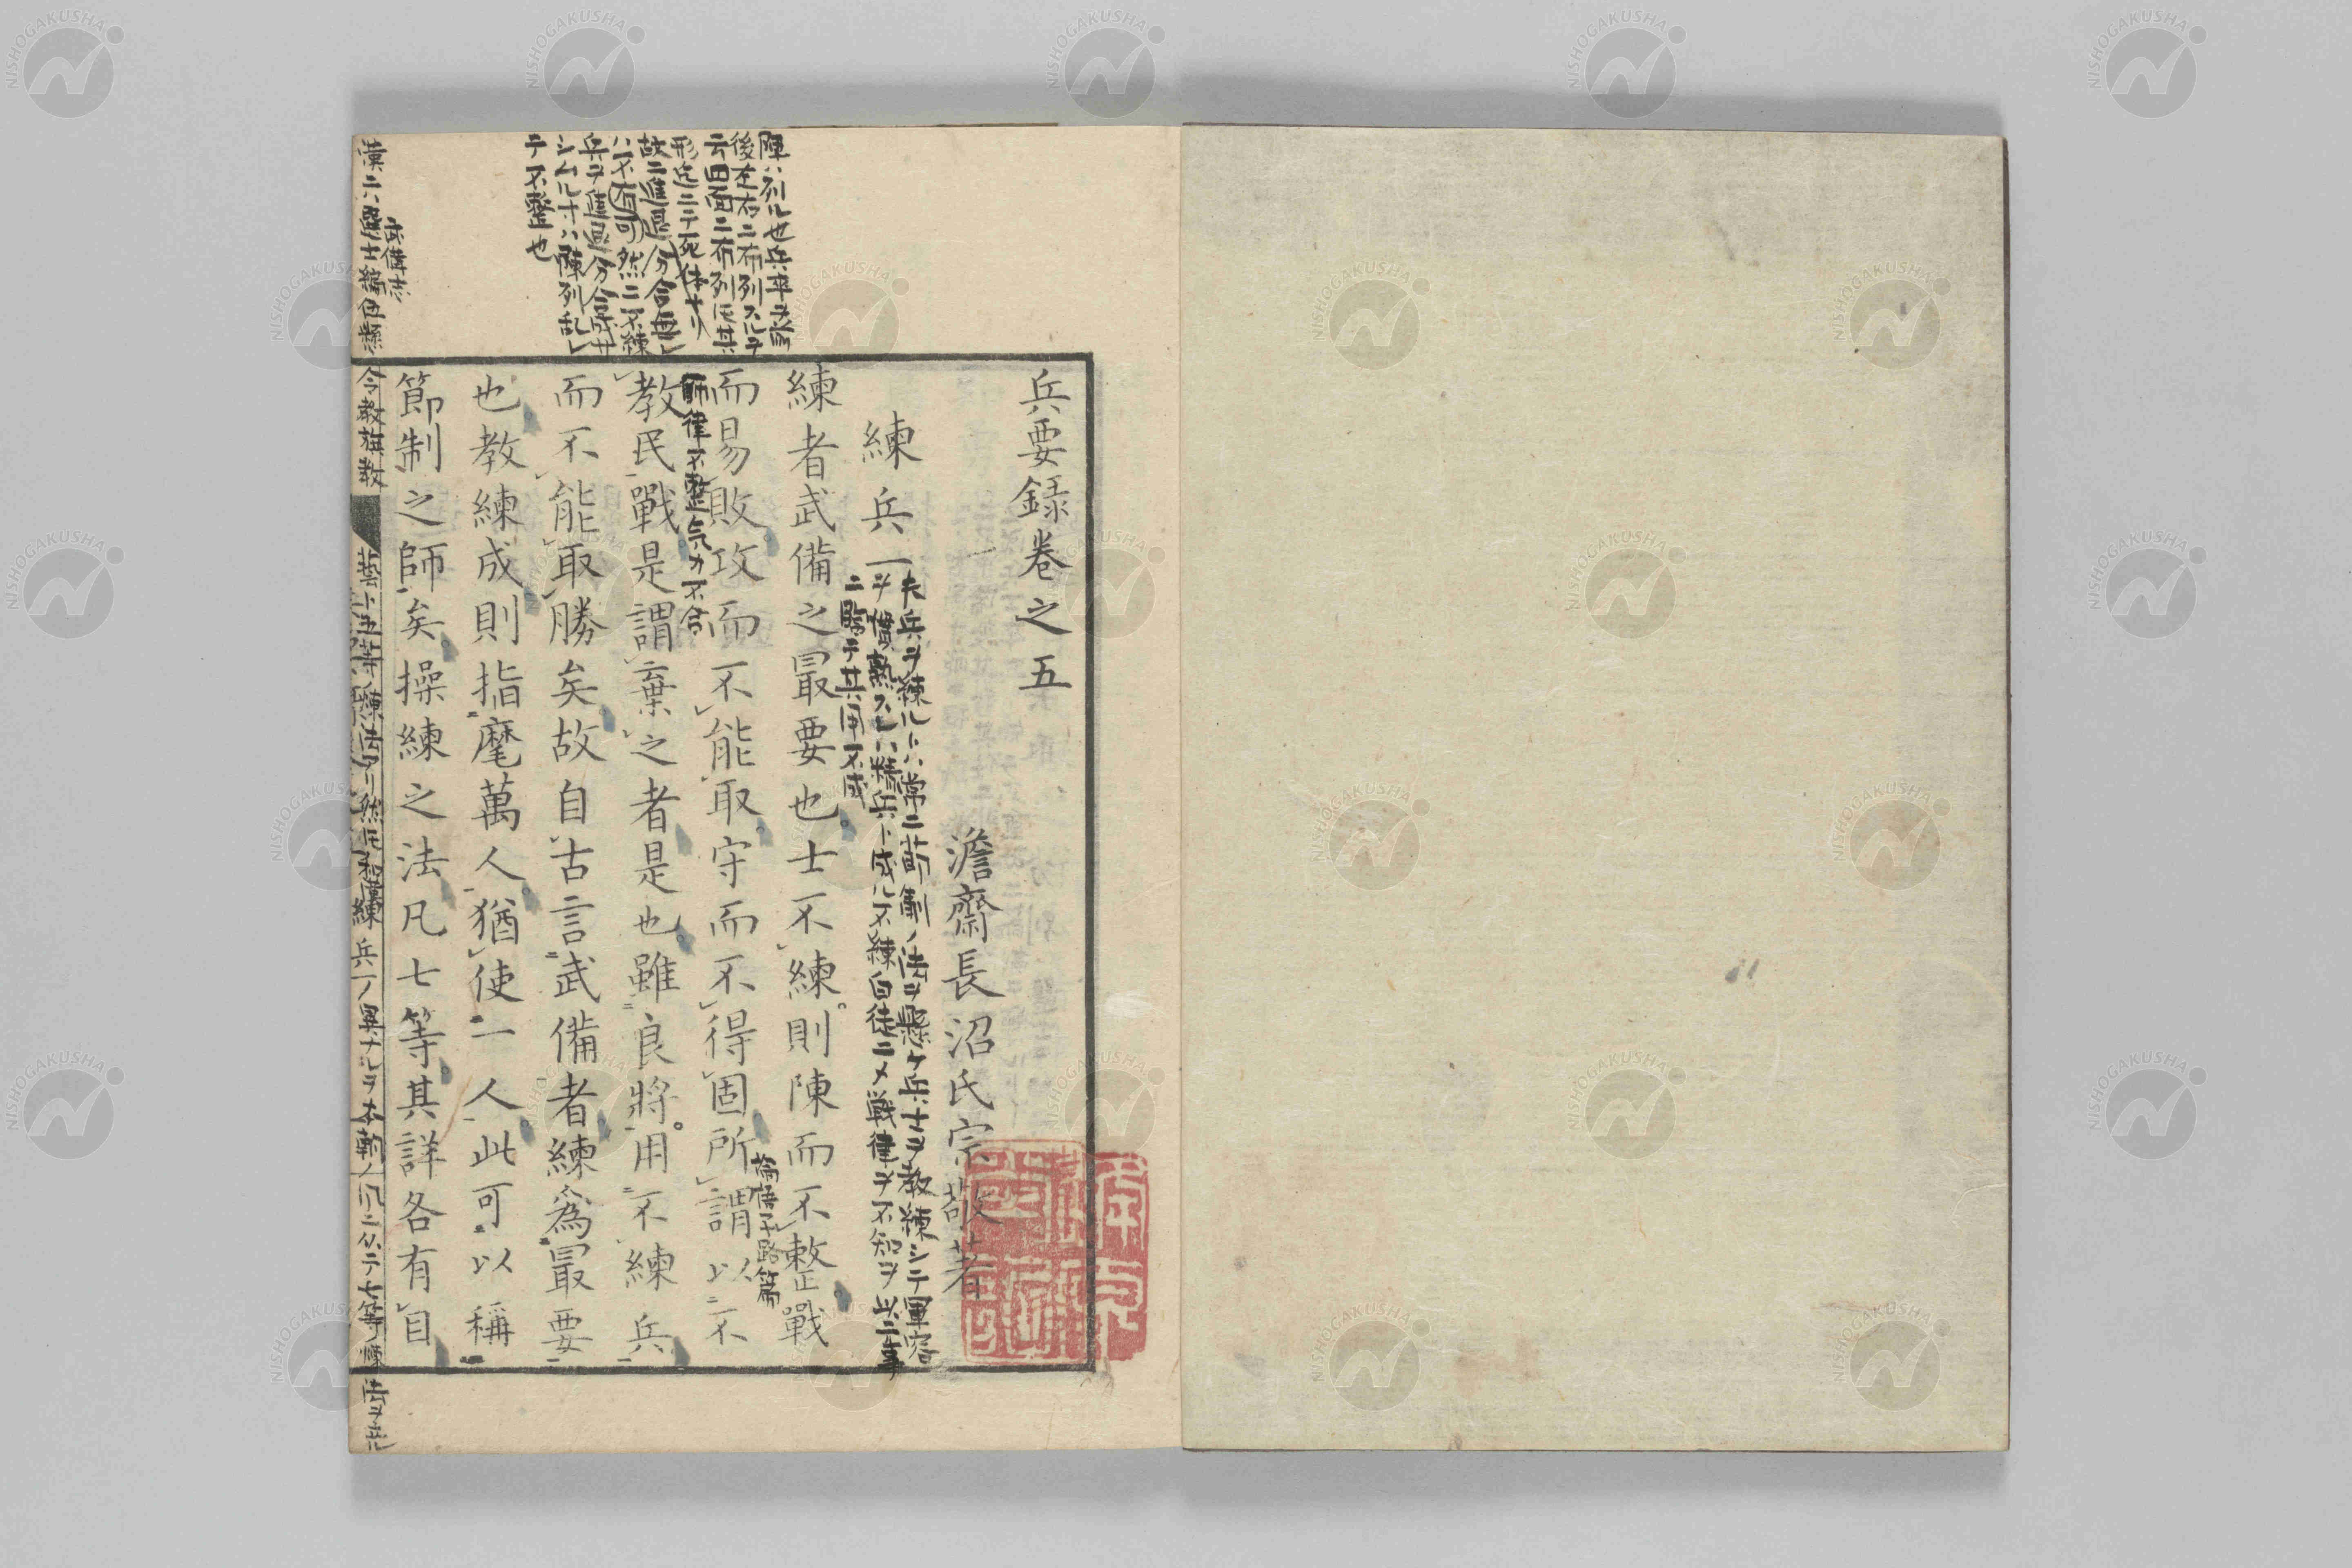 兵要録卷之五
澹齋長沼氏宗敬著
練兵一
夫兵ヲ練ルトハ常ニ節制ノ法ヲ懸ケ兵士ヲ教練シテ軍容
ヲ慣熟スレハ精兵ト成ル不練白徒ニメ戦律ヲ不知ヲ以ニ事
ニ臨テ其用不成
練者武備之最要也士不練則陳而不整戰
論語子路篇
而易敗攻而不能取守而不得固所謂以不
師律不整気力不合
教民戰是謂棄之者是也雖良將用不練兵
而不能取勝矣故自古言武備者練為最要
也教練成則指麾萬人猶使一人此可以稱
節制之師矣操練之法凡七等其詳各有目
陣ハ列ル也兵卒ヲ前
後左右ニ布列スルヲ
云四面ニ布列シ其
形迄ニテ死体ナリ
故ニ進退分合無レ
ハ不有可然ニ不練
兵ヲ進退分合成サ
シムル寸ハ陳列乱レ
テ不整也
武備志
漢ニハ選士編伍懸令教旗教
藝ト五等ノ練法アリ然圧和漢練兵ノ異ナルヲ本朝ノ風ニ从テ七等ノ練法ヲ立ル
NISHOGAKUSHA